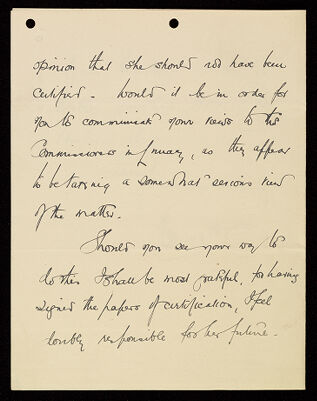 opinion that she should not have been
certified - Would it be in order for
you to communicate your views to the
Commissioners in Lunacy, as they appear
to be taking a somewhat serious view
of the matter.
Should you see your way to
do this I shall be most grateful, for having
signed the papers of certification, I feel
terribly responsible for her future.